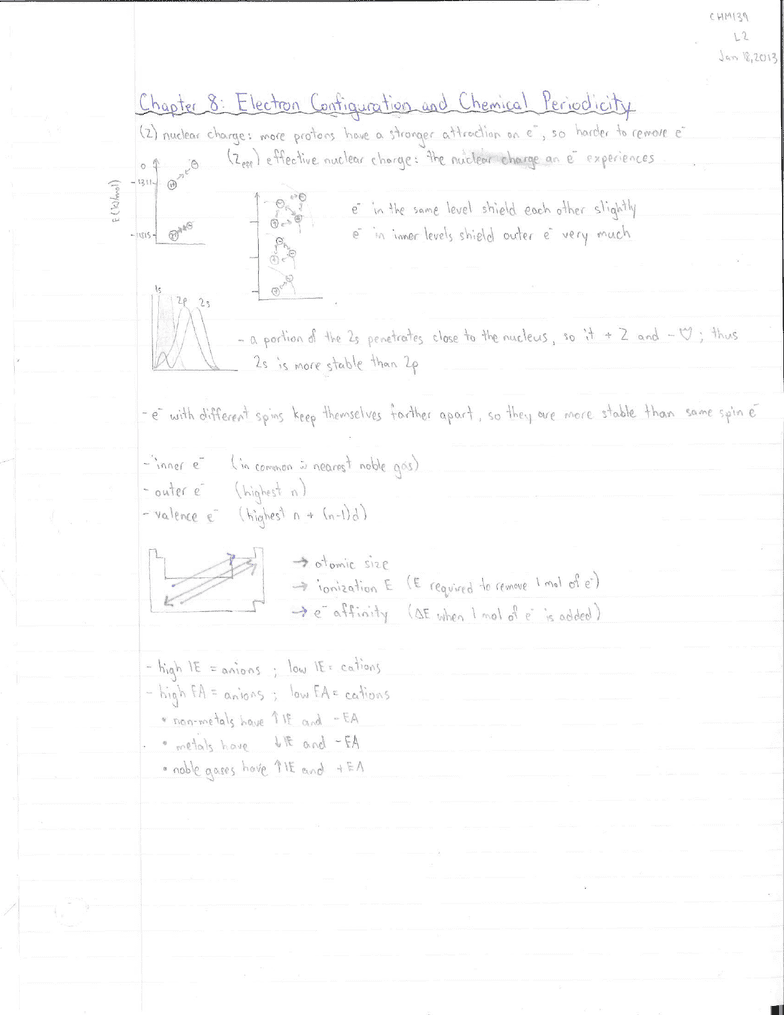 CHM139
L2
Jan 18, 2013
Chapter 8: Electron Configuration and Chemical Periodicity
(Z) nuclear charge: more protons have a stronger attraction on e⁻, so harder to remove e⁻
(Zeff) effective nuclear charge: the nuclear charge an e⁻ experiences
E (kJ/mol)
0
-1311
e⁻ in the same level shield each other slightly
e⁻ in inner levels shield outer e⁻ very much
1s
2p 2s
- a portion of the 2s penetrates close to the nucleus, so it + Z and - ; thus
2s is more stable than 2p
- e⁻ with different spins keep themselves farther apart, so they are more stable than same spin e⁻
- inner e⁻ (in common nearest noble gas)
- outer e⁻ (highest n)
- valence e⁻ (highest n + (n-1)d)
→ atomic size
→ ionization E (E required to remove 1 mol of e⁻)
→ e⁻ affinity (ΔE when 1 mol of e⁻ is added)
- high IE = anions ; low IE = cations
- high EA = anions ; low EA = cations
• non-metals have ↑IE and -EA
• metals have ↓IE and -EA
• noble gases have ↑IE and +EA